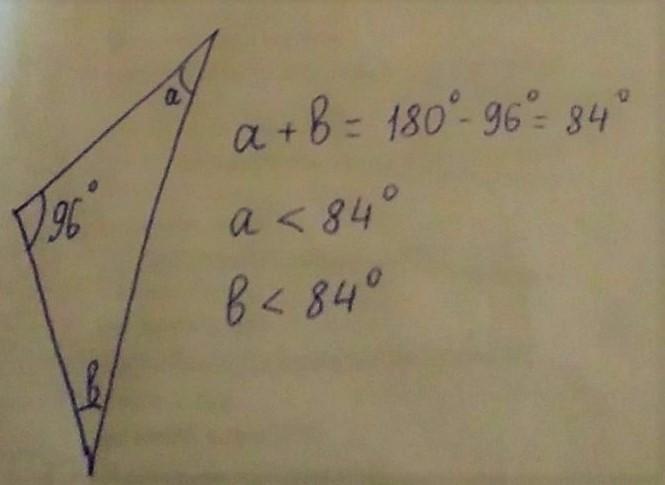 a
96°
b
a + b = 180° - 96° = 84°
a < 84°
b < 84°